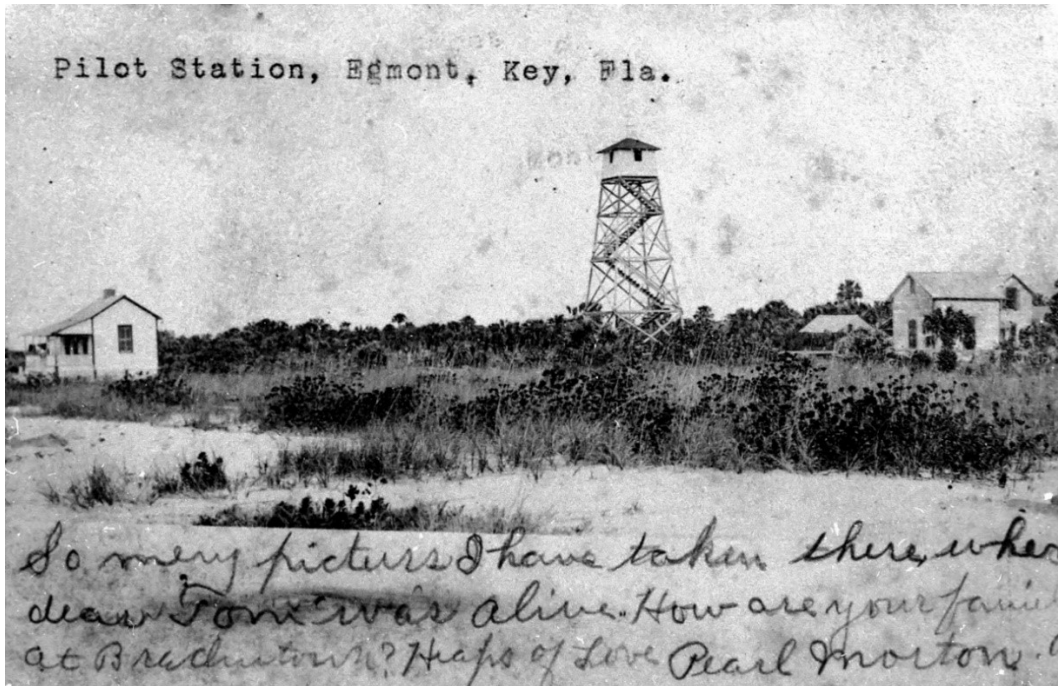 Pilot Station, Egmont, Key, Fla.
So meny picturs I have taken there, when
dear Tom was alive. How are your
at Bradentown? Heaps of Love Pearl Morton.